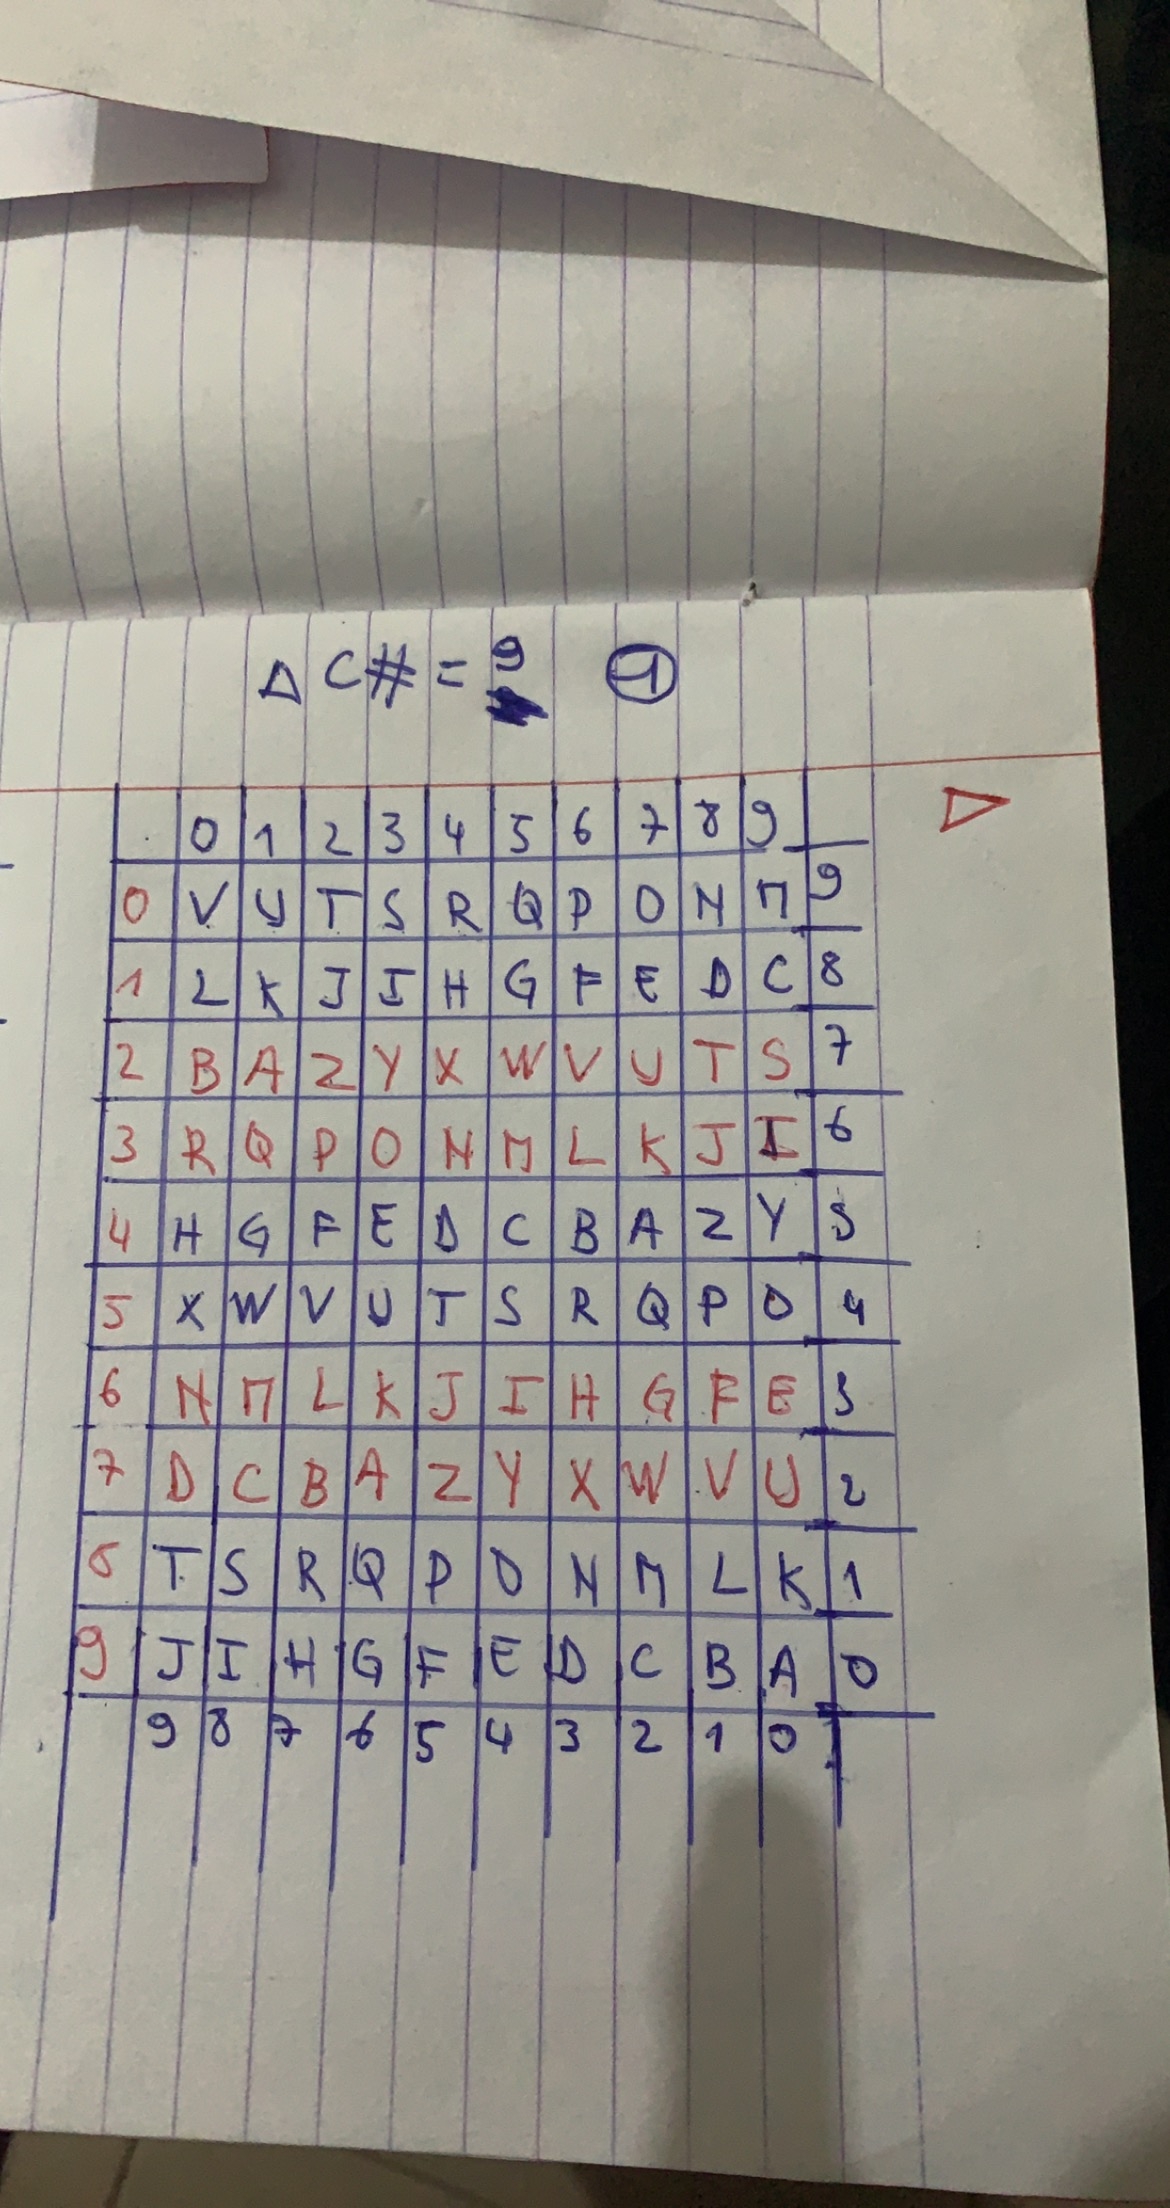 Δ C# = 9 1
0 1 2 3 4 5 6 7 8 9
0 V U T S R Q P O N M 9
1 L K J I H G F E D C 8
2 B A Z Y X W V U T S 7
3 R Q P O N M L K J I 6
4 H G F E D C B A Z Y 5
5 X W V U T S R Q P O 4
6 N M L K J I H G F E 3
7 D C B A Z Y X W V U 2
8 T S R Q P O N M L K 1
9 J I H G F E D C B A 0
9 8 7 6 5 4 3 2 1 0